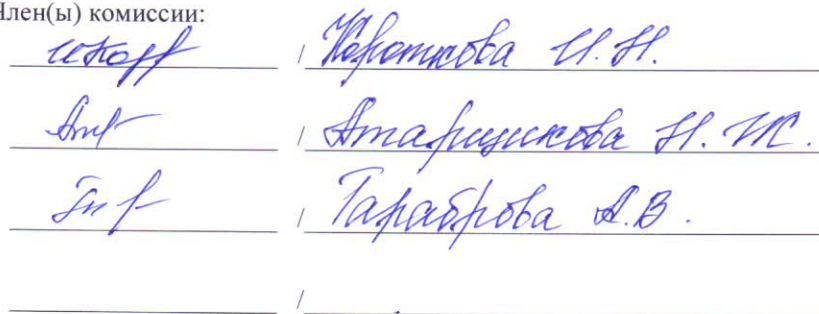 Член(ы) комиссии:
/ Короткова И.Н.
/ Атарщикова Н.Ж.
/ Тараброва А.В.
/